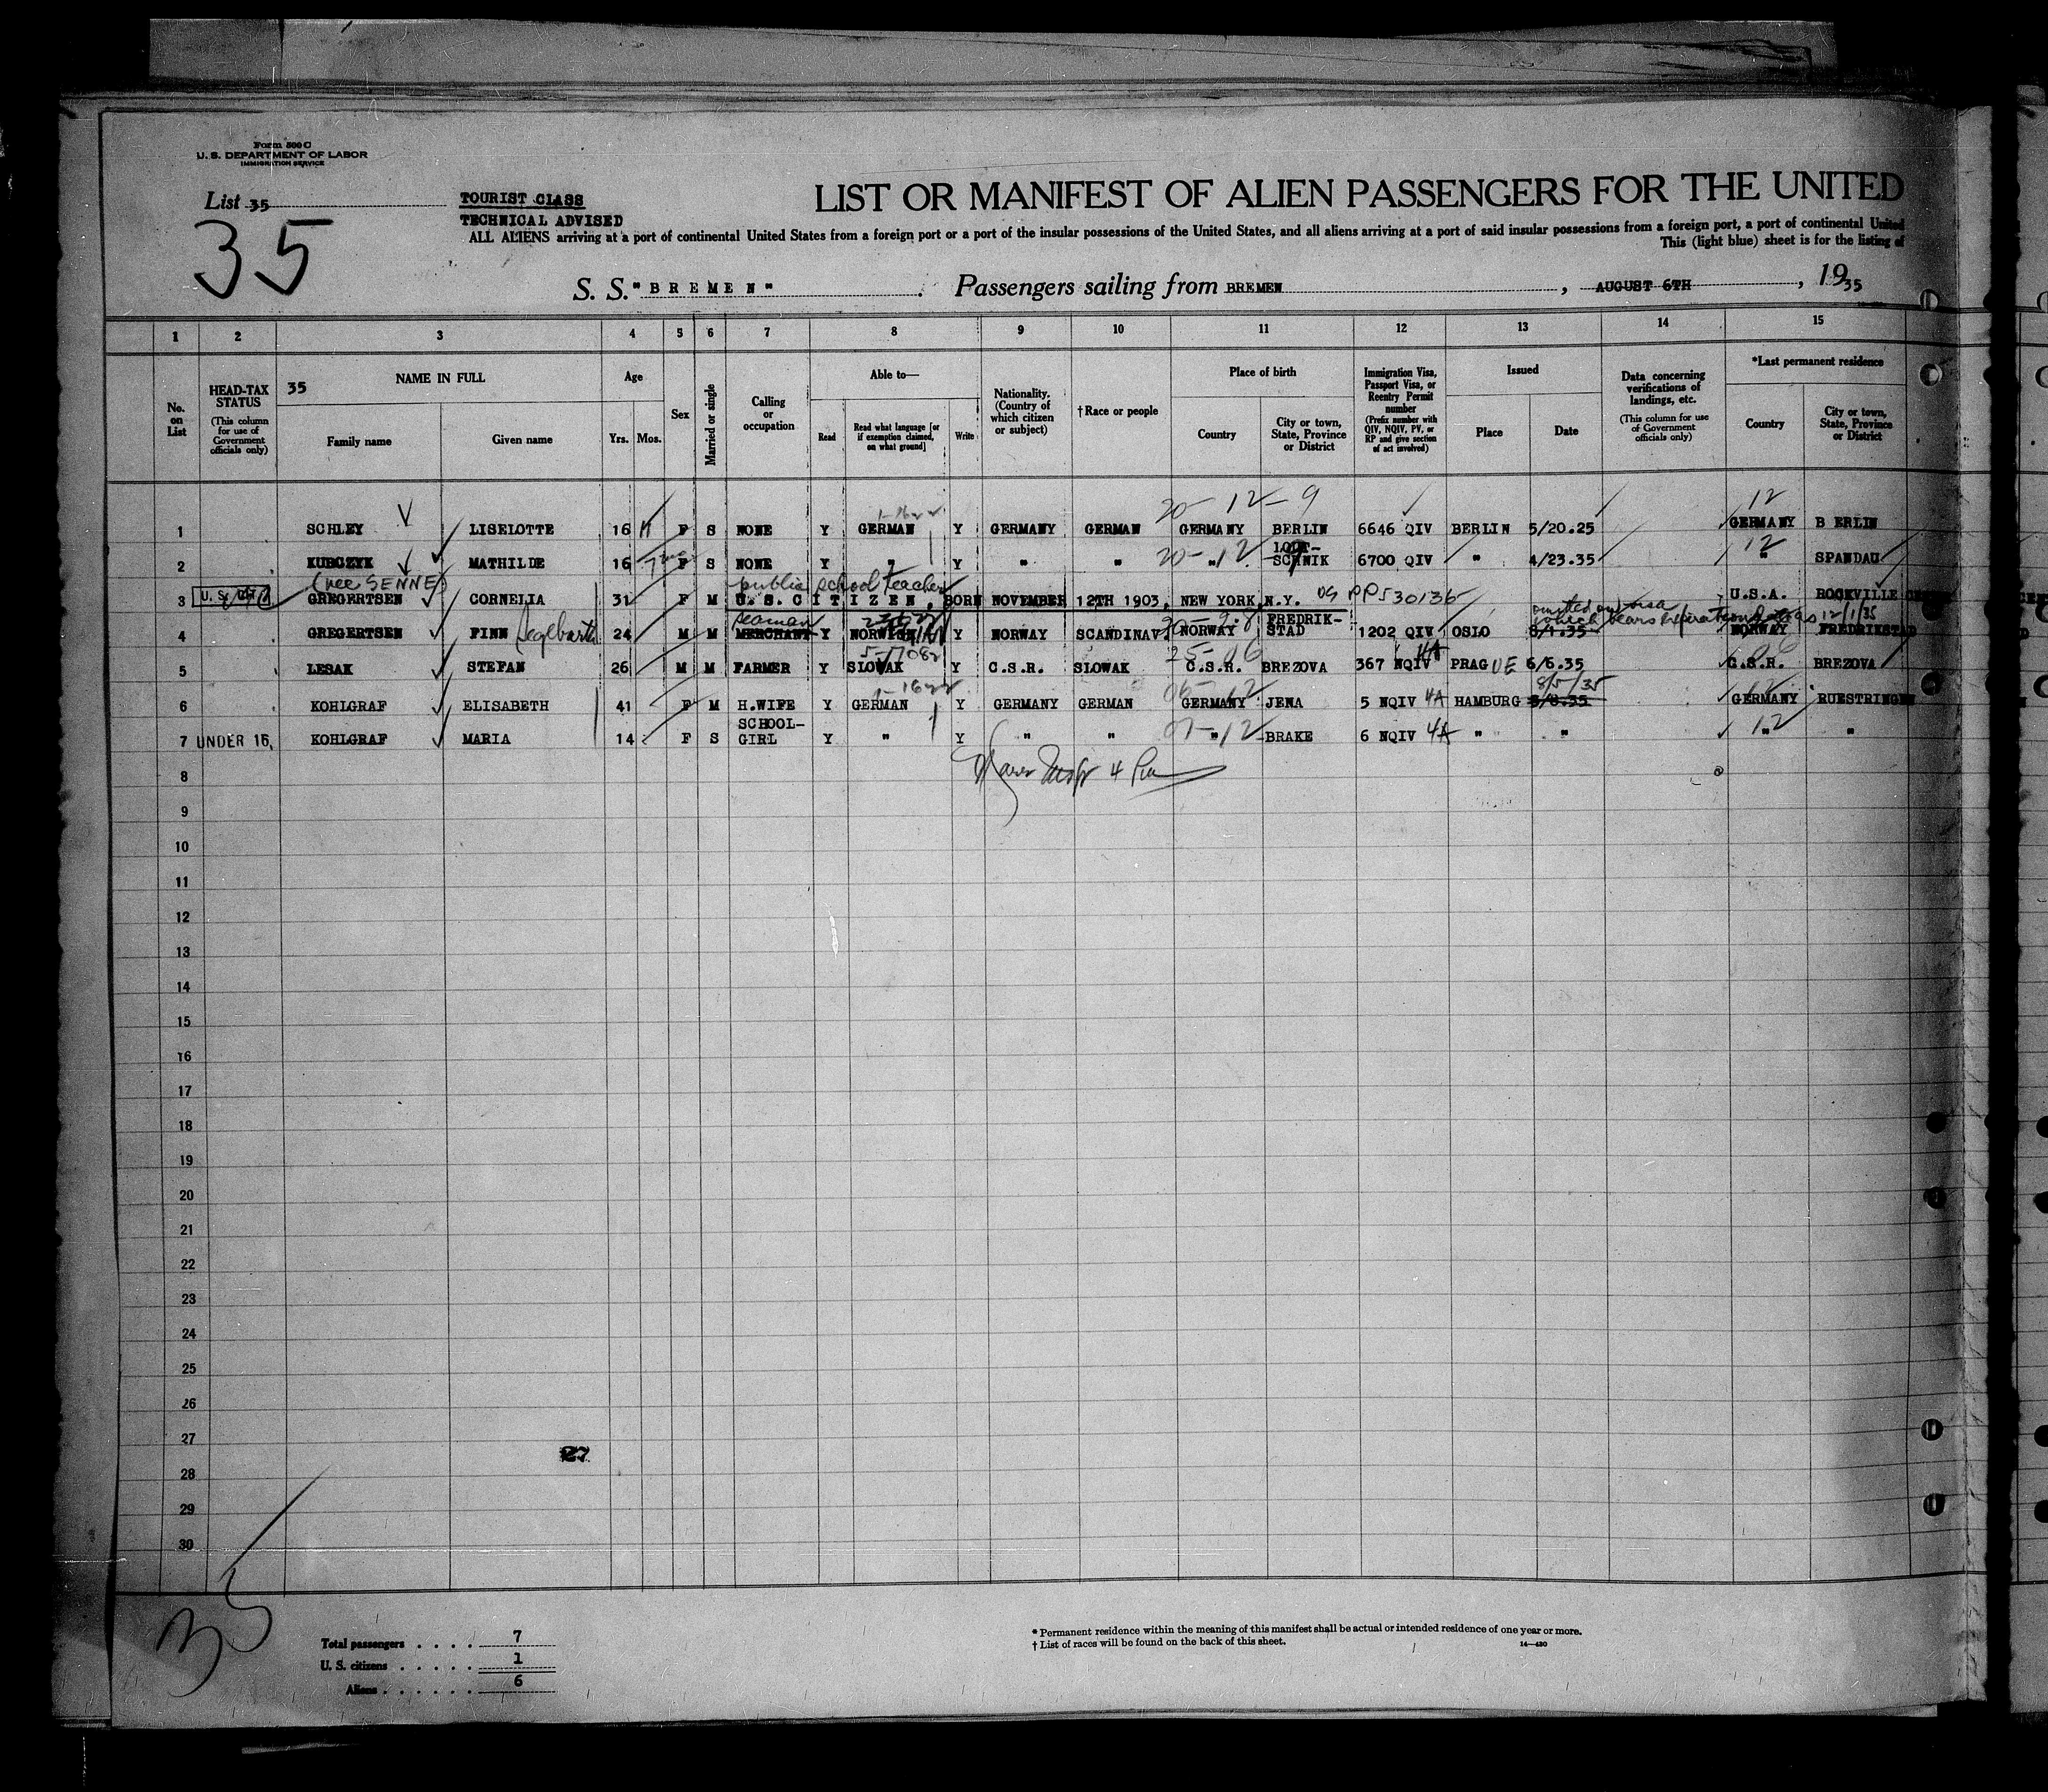 Form 500 C
U. S. DEPARTMENT OF LABOR
IMMIGRATION SERVICE
List 35
35
TOURIST CLASS
TECHNICAL ADVISED
LIST OR MANIFEST OF ALIEN PASSENGERS FOR THE UNITED
ALL ALIENS arriving at a port of continental United States from a foreign port or a port of the insular possessions of the United States, and all aliens arriving at a port of said insular possessions from a foreign port, a port of continental United
This (light blue) sheet is for the listing of
S. S. "BREMEN" . Passengers sailing from BREMEN , AUGUST 6TH , 1935
1 2 3 4 5 6 7 8 9 10 11 12 13 14 15
No. on List
HEAD-TAX STATUS
(This column for use of Government officials only)
35 NAME IN FULL
Family name
Given name
Age
Yrs. Mos.
Sex
Married or single
Calling or occupation
Able to—
Read
Read what language [or if exemption claimed, on what ground]
Write
Nationality. (Country of which citizen or subject)
† Race or people
Place of birth
Country
City or town, State, Province or District
Immigration Visa, Passport Visa, or Reentry Permit number
(Prefix number with QIV, NQIV, PV, or RP and give section of act involved)
Issued
Place
Date
Data concerning verifications of landings, etc.
(This column for use of Government officials only)
*Last permanent residence
Country
City or town, State, Province or District
20- 12-9 12
1 SCHLEY LISELOTTE 16 11 F S NONE Y GERMAN Y GERMANY GERMAN GERMANY BERLIN 6646 QIV BERLIN 5/20.25 GERMANY BERLIN
2 KUBCZYK MATHILDE 16 F S NONE Y " Y " " " SCHNIK 6700 QIV " 4/23.35 " SPANDAU
(nee SENNE) public school teacher
3 U. S. CIT. GREGERTSEN CORNELIA 31 F M U.S.CITIZEN, BORN NOVEMBER 12TH 1903, NEW YORK, N.Y. PP 530136 U.S.A. ROCKVILLE
seaman omitted on visa which bears expiration 12/1/35
4 GREGERTSEN FINN 24 M M MERCHANT Y Y NORWAY SCANDINAV. NORWAY FREDRIK-STAD 1202 QIV OSLO 8/1.35 NORWAY FREDRIKSTAD
5 LESAK STEFAN 26 M M FARMER Y SLOVAK Y C.S.R. SLOWAK C.S.R. BREZOVA 367 NQIV 4A PRAGUE 6/6.35 C.S.R. BREZOVA
8/5/35
6 KOHLGRAF ELISABETH 41 F M H.WIFE Y GERMAN Y GERMANY GERMAN GERMANY JENA 5 NQIV 4A HAMBURG GERMANY RUESTRINGEN
7 UNDER 16 KOHLGRAF MARIA 14 F S SCHOOL-GIRL Y " Y " " " BRAKE 6 NQIV 4A " " " "
8
9
10
11
12
13
14
15
16
17
18
19
20
21
22
23
24
25
26
27
27
28
29
30
35
Total passengers . . . . 7
U. S. citizens . . . . . 1
Aliens . . . . . . 6
* Permanent residence within the meaning of this manifest shall be actual or intended residence of one year or more.
† List of races will be found on the back of this sheet.
14—430